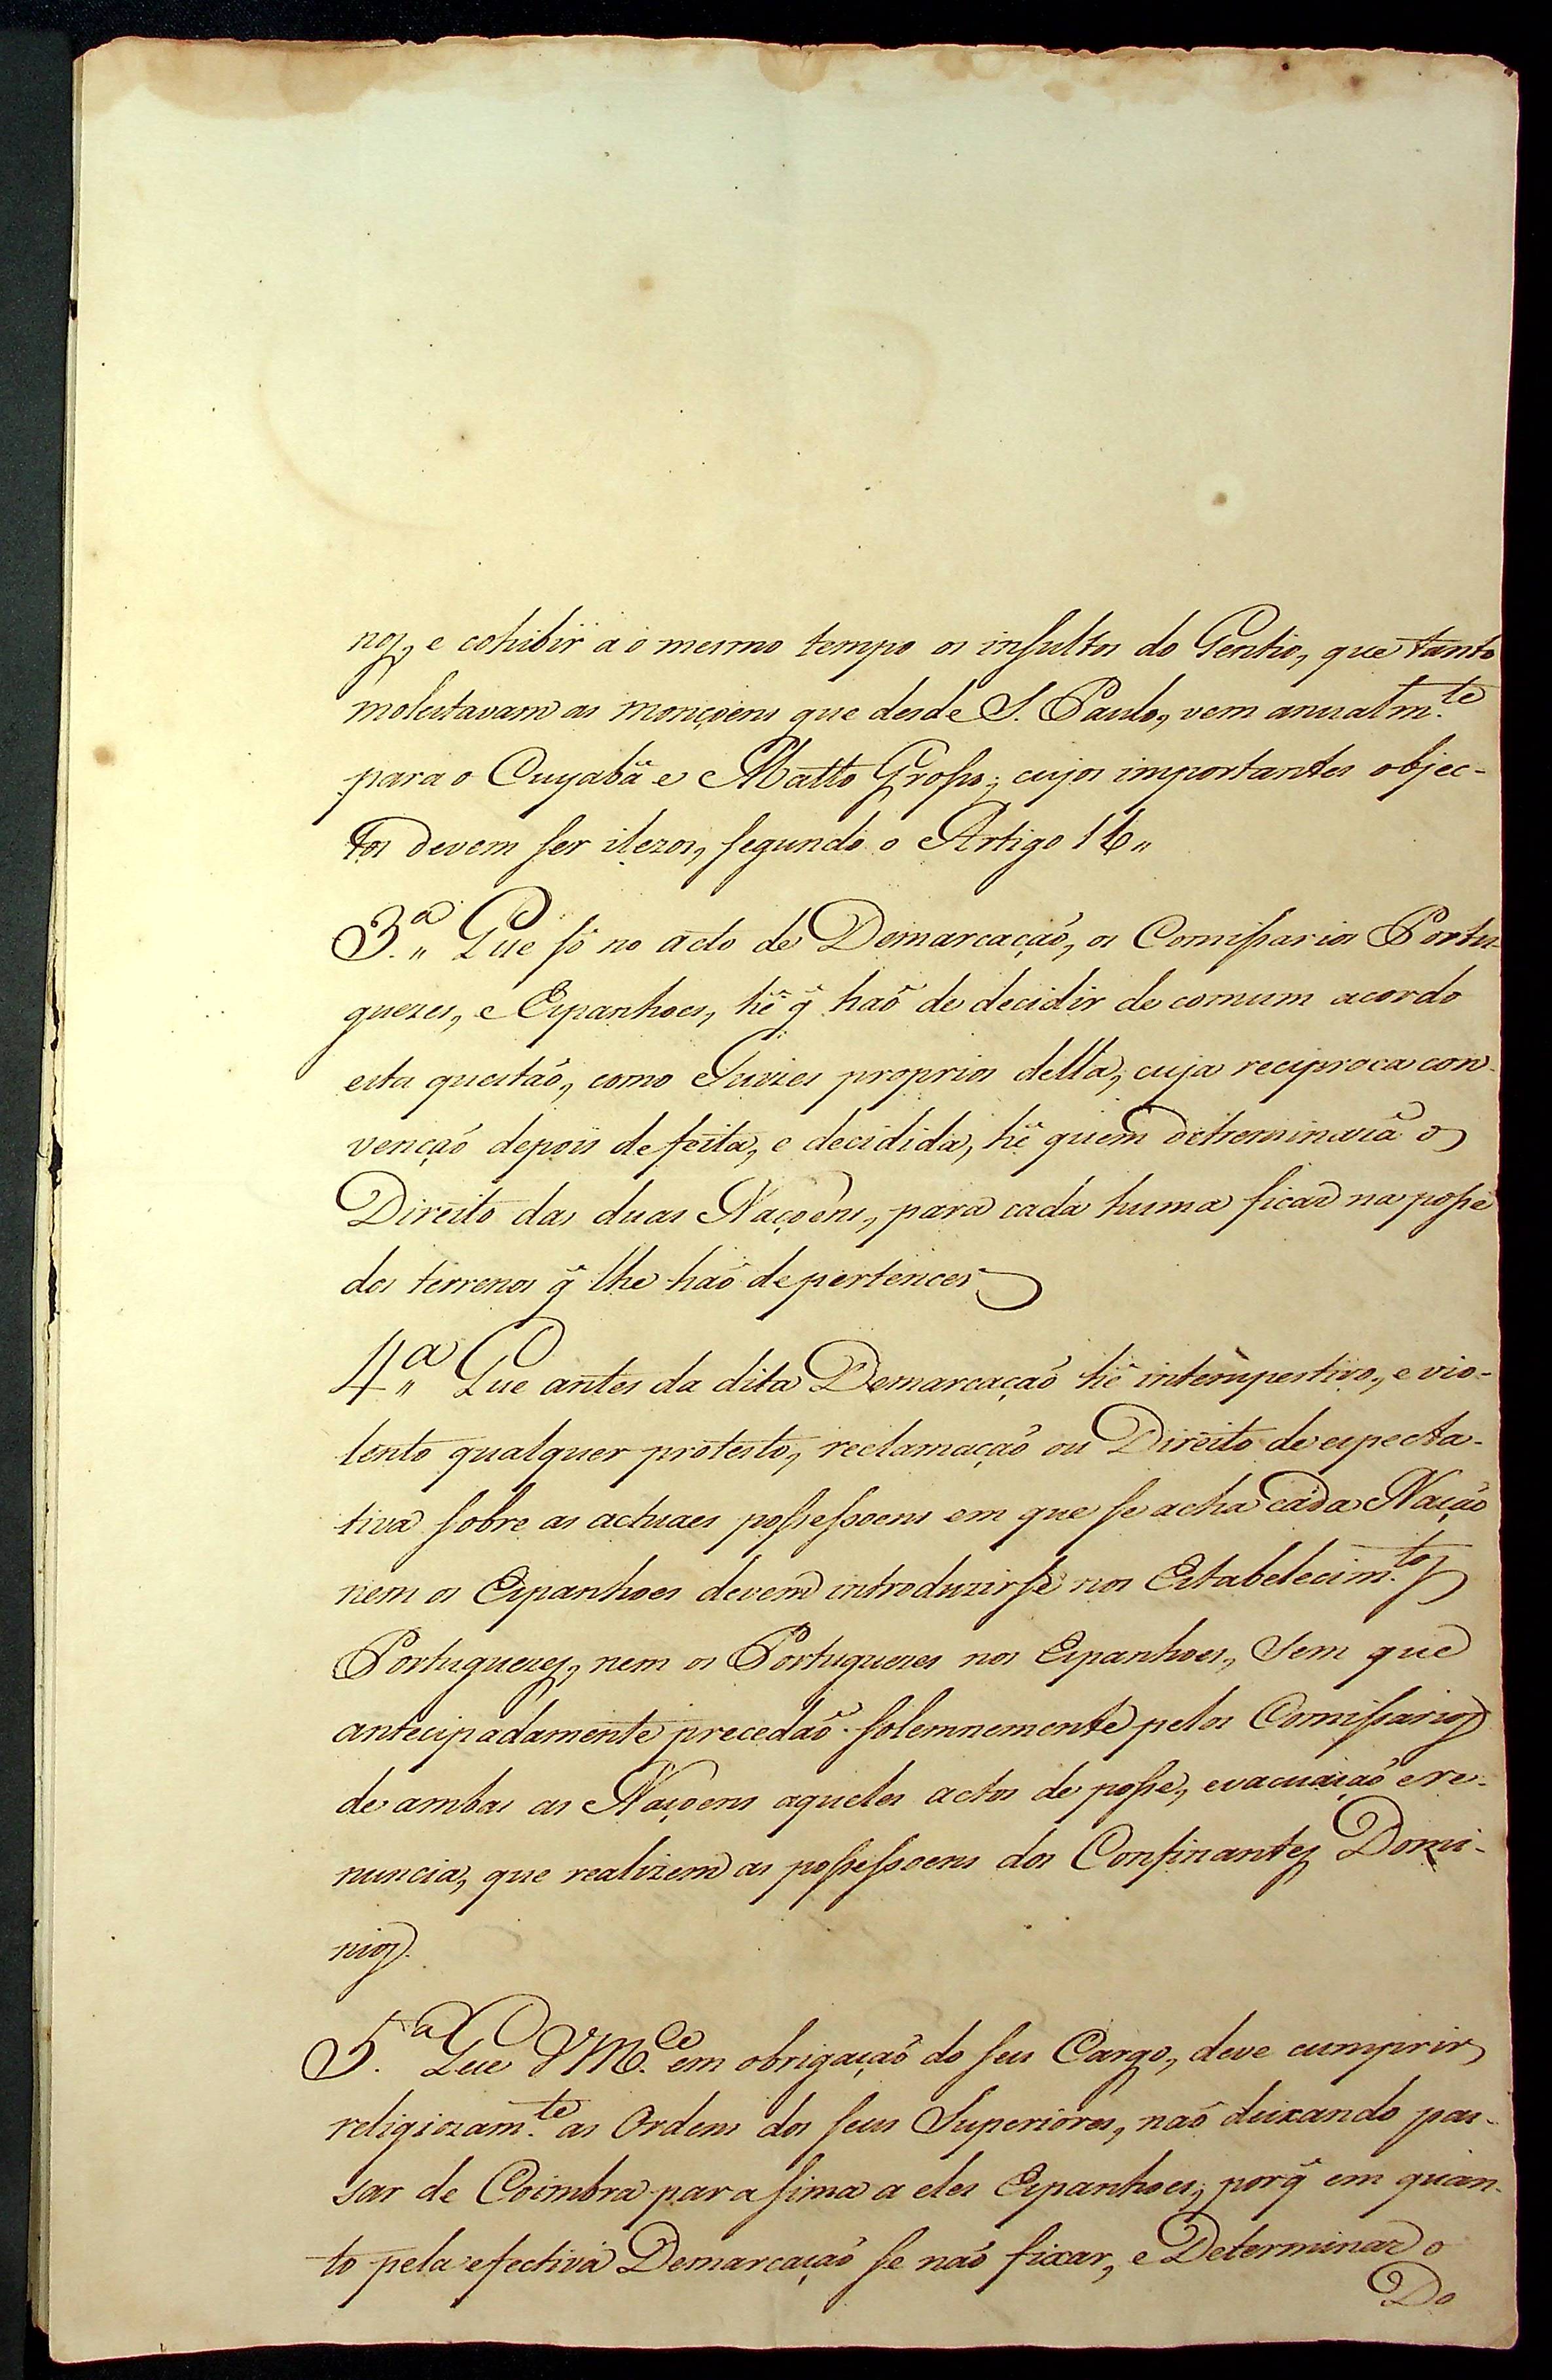 nos, e cohibir ao mesmo tempo os insultos do Gentio, que tanto
molestavam as monçoens que desde S. Paulo, vem anualm.te
para o Cuyabá e Matto Grosso; cujos importantes objec-
tos devem ser ilezos, segundo o Artigo 16„
3.a„ Que só no acto de Demarcaçaõ, os Comissarios Portu
guezes, e Espanhoes, hê q̃ haõ de decidir de comum acordo
esta questaõ, como Juizes proprios della, cuja reciproca con-
vençaõ depois de feita, e decidida, hê quem detreminará o
Direito das duas Naçoens, para cada huma ficar na posse
dos terrenos q̃ lhe haõ de pertencer
4.a„ Que antes da dita Demarcaçaõ hê intempestivo, e vio-
lento qualquer protesto, reclamaçaõ ou Direito de espectá-
tiva sobre as actuaes possessoens em que se acha cada Naçaõ
nem os Espanhoes devem introduzirse nos Estabelecim.tos
Portuguezes, nem os Portuguezes nos Espanhoes, sem que
antecipadamente precedaõ solemnemente pelos Comissarios
de ambas as Naçoens aqueles actos de posse, evacuaçaõ e re-
nuncia, que realizem as possessoens dos Confinantes Domi-
nios.
5.a Que VM.ce em obrigaçaõ do seu Cargo, deve cumprir
religiozam.te as Ordens dos seus Superiores, naõ deixando pas-
sar de Coimbra para sima a eles Espanhoes; porq̃ em quan-
to pela efectiva Demarcaçaõ se naõ fixar, e Determinar o
Do